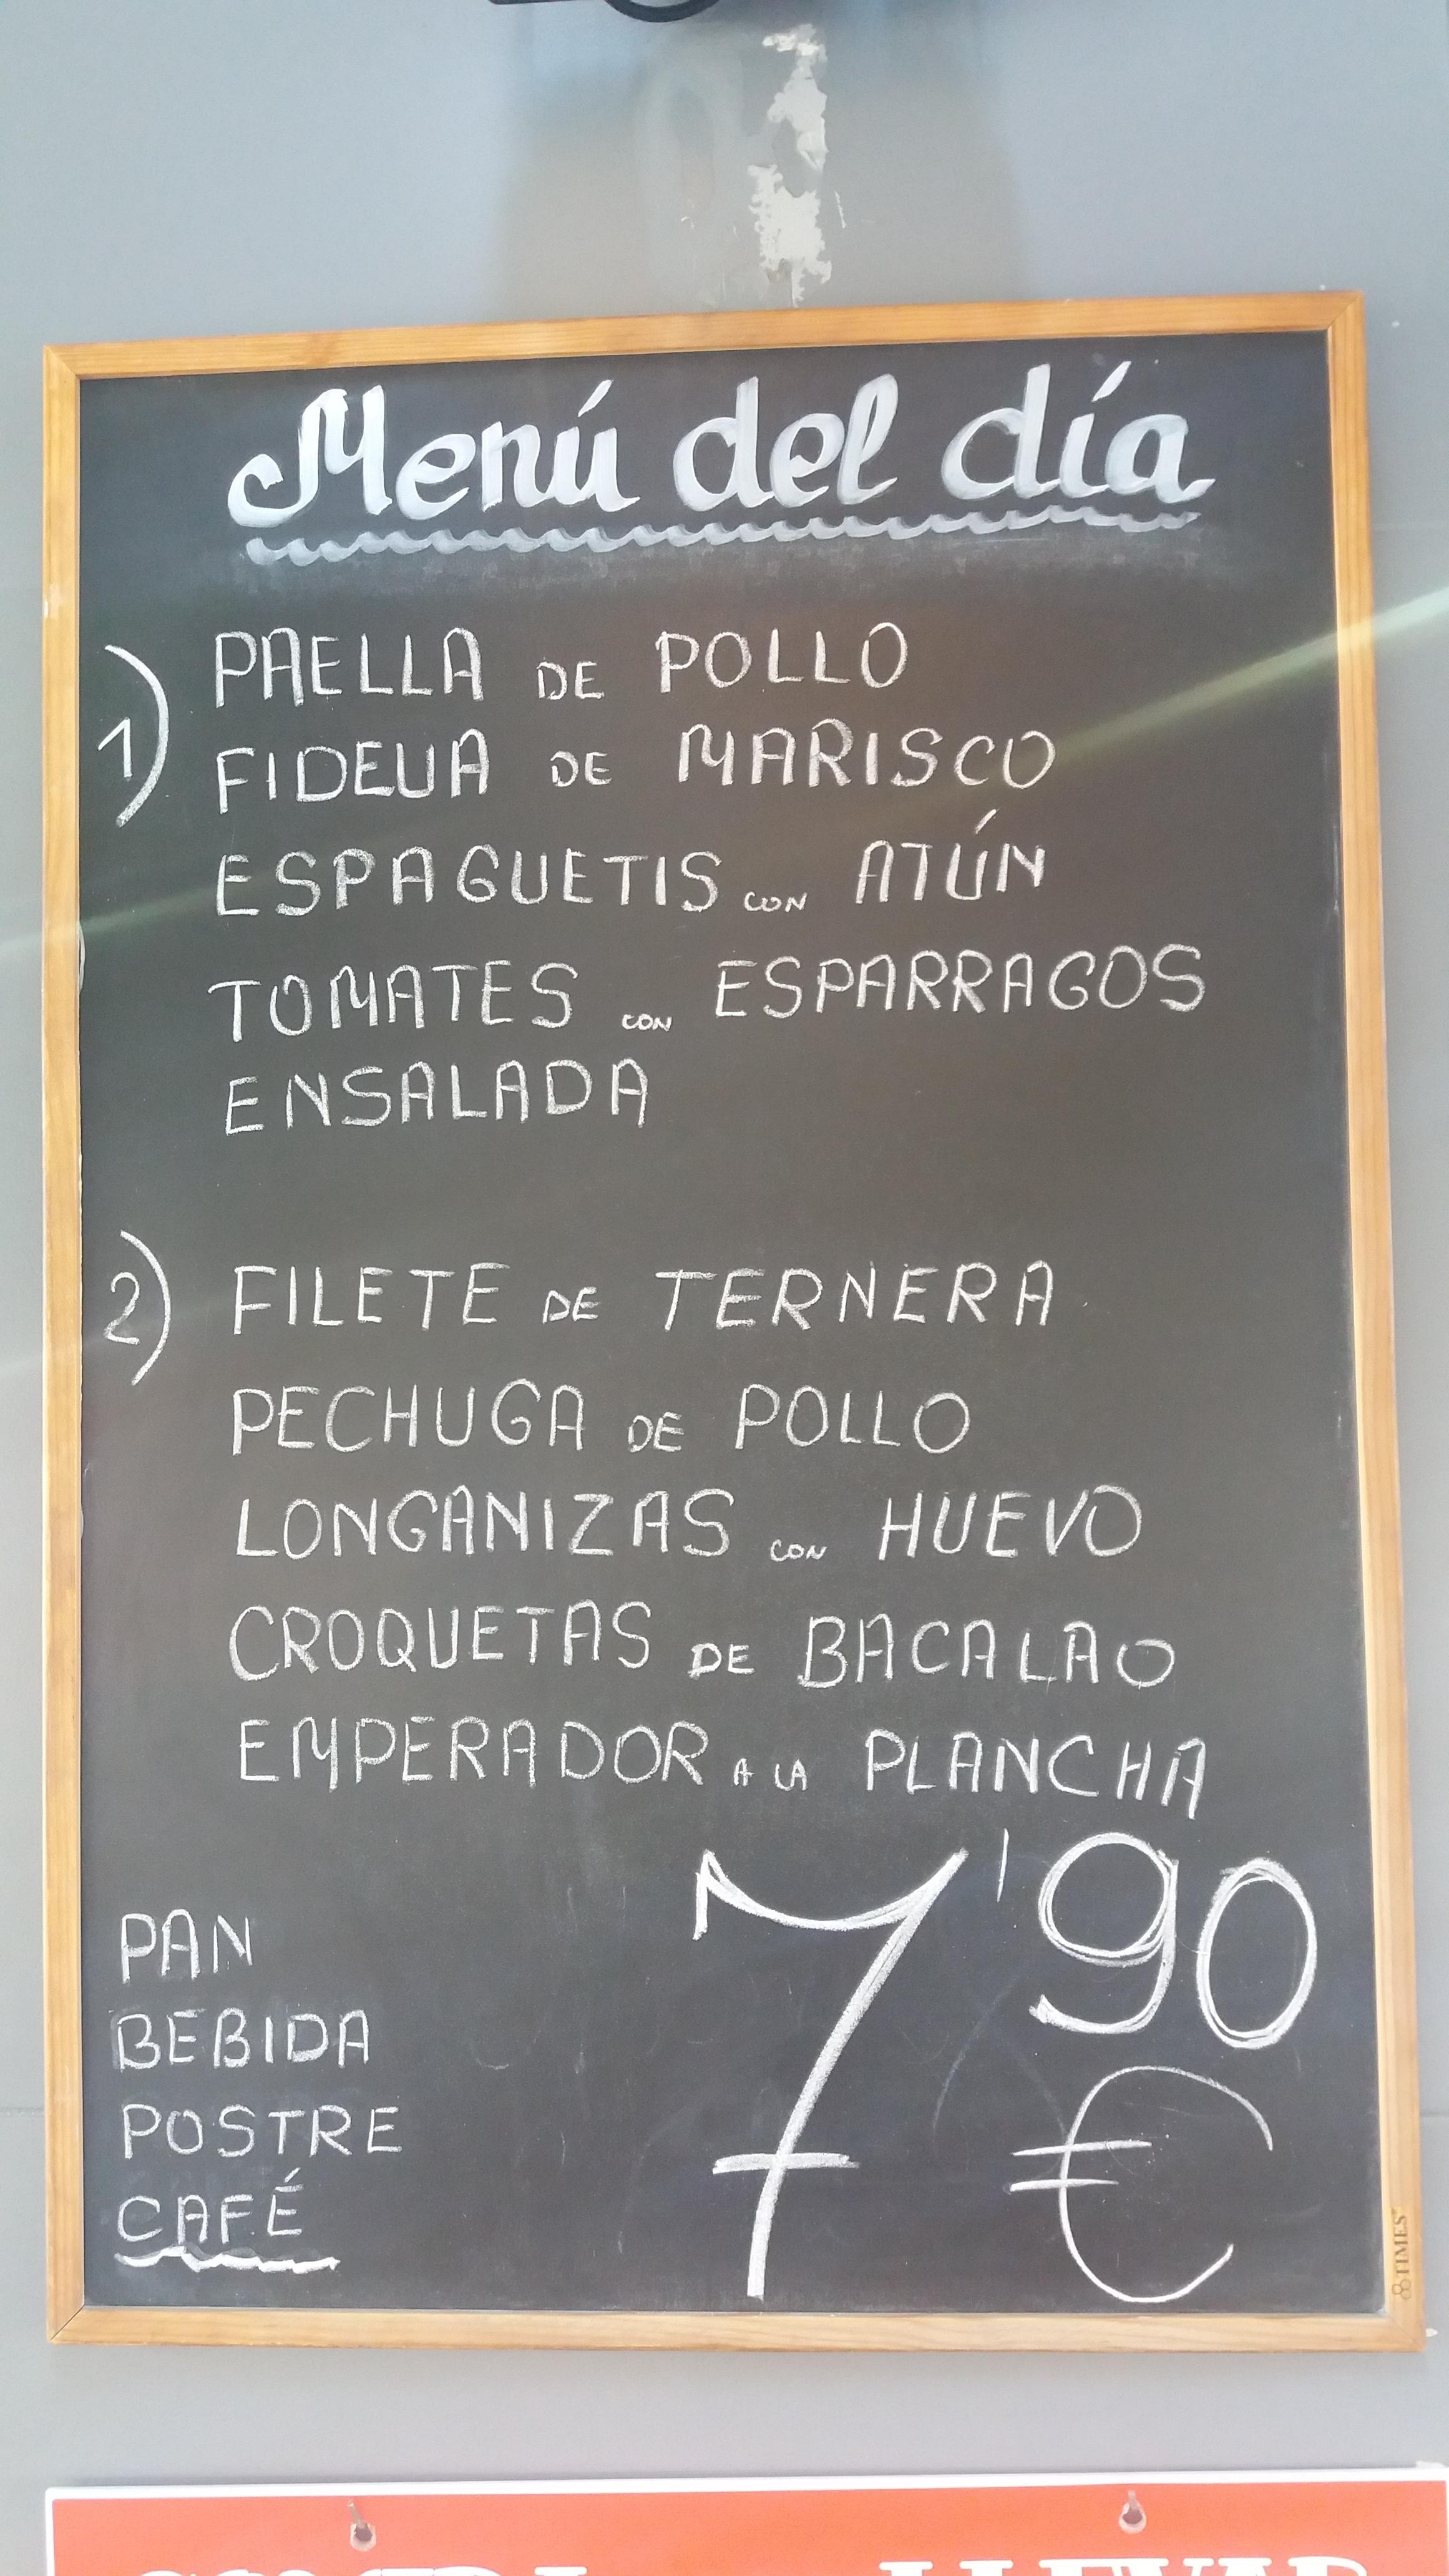 Menú del día
1) PAELLA DE POLLO
FIDEUA DE MARISCO
ESPAGUETIS CON ATÚN
TOMATES CON ESPARRAGOS
ENSALADA
2) FILETE DE TERNERA
PECHUGA DE POLLO
LONGANIZAS CON HUEVO
CROQUETAS DE BACALAO
EMPERADOR A LA PLANCHA
PAN
BEBIDA
POSTRE
CAFÉ
7'90
€
TIMES
LLEVAR